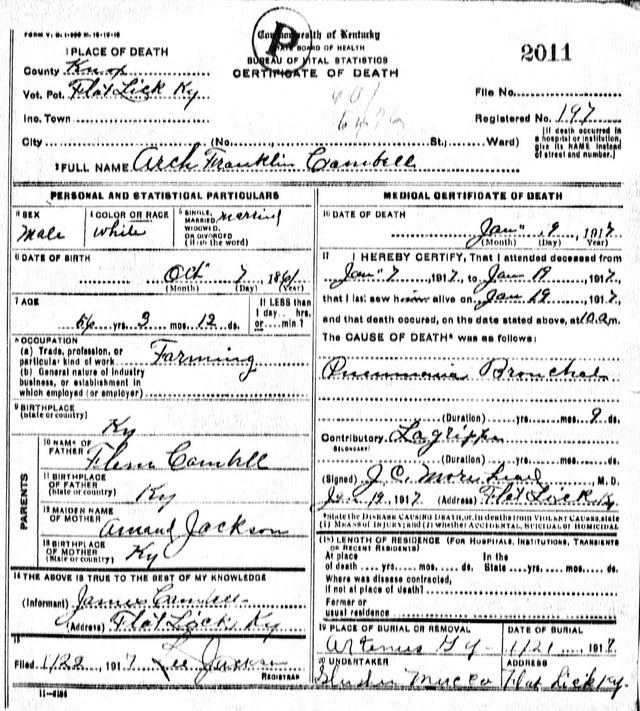 FORM V. S. 1-300 M. 10-19-16
Commonwealth of Kentucky
P
STATE BOARD OF HEALTH
BUREAU OF VITAL STATISTICS
CERTIFICATE OF DEATH
2011
1 PLACE OF DEATH
County Knox
Vot. Pct. Flat Lick Ky
Inc. Town
City
(No. St.; Ward)
File No.
Registered No. 197
(If death occurred in a hospital or institution, give its NAME instead of street and number.)
2 FULL NAME Arch Franklin Cambell
PERSONAL AND STATISTICAL PARTICULARS
3 SEX
Male
4 COLOR OR RACE
White
5 SINGLE, MARRIED, WIDOWED, OR DIVORCED (Write the word)
Married
6 DATE OF BIRTH
Oct 7 1861
(Month) (Day) (Year)
7 AGE
yrs. 3 mos. 12 ds.
If LESS than 1 day hrs. or min ?
8 OCCUPATION
(a) Trade, profession, or particular kind of work Farming
(b) General nature of industry business, or establishment in which employed (or employer)
9 BIRTHPLACE
(State or country)
Ky
PARENTS
10 NAME OF FATHER Cambell
11 BIRTHPLACE OF FATHER (State or country) Ky
12 MAIDEN NAME OF MOTHER Jackson
13 BIRTHPLACE OF MOTHER (State or country) Ky
14 THE ABOVE IS TRUE TO THE BEST OF MY KNOWLEDGE
(Informant) James Cambell
(Address) Flat Lick, Ky
15
Filed 1/22 1917 Lee Jackson
REGISTRAR
11-5184
MEDICAL CERTIFICATE OF DEATH
16 DATE OF DEATH
Jan 1917
(Month) (Day) (Year)
17 I HEREBY CERTIFY, That I attended deceased from
Jan 7 1917, to Jan 19, 1917,
that I last saw him alive on Jan 1917,
and that death occured, on the date stated above, at 10 a m.
The CAUSE OF DEATH* was as follows:
Pneumonia Bronchal
(Duration) yrs. mos. 9 ds.
Contributory Lagrippe
SECONDARY
(Duration) yrs. mos. ds.
(Signed) J. C. M. D.
Jan 19, 1917 (Address) Flat Lick Ky
*State the DISEASE CAUSING DEATH, or, in deaths from VIOLENT CAUSES, state (1) MEANS OF INJURY; and (2) whether ACCIDENTAL, SUICIDAL OR HOMICIDAL
(18) LENGTH OF RESIDENCE (FOR HOSPITALS, INSTITUTIONS, TRANSIENTS OR RECENT RESIDENTS)
At place of death yrs. mos. ds. In the State yrs. mos. ds.
Where was disease contracted, if not at place of death?
Former or usual residence
19 PLACE OF BURIAL OR REMOVAL
Artemus Ky
DATE OF BURIAL
1/21 1917
20 UNDERTAKER
ADDRESS
Flat Lick Ky.